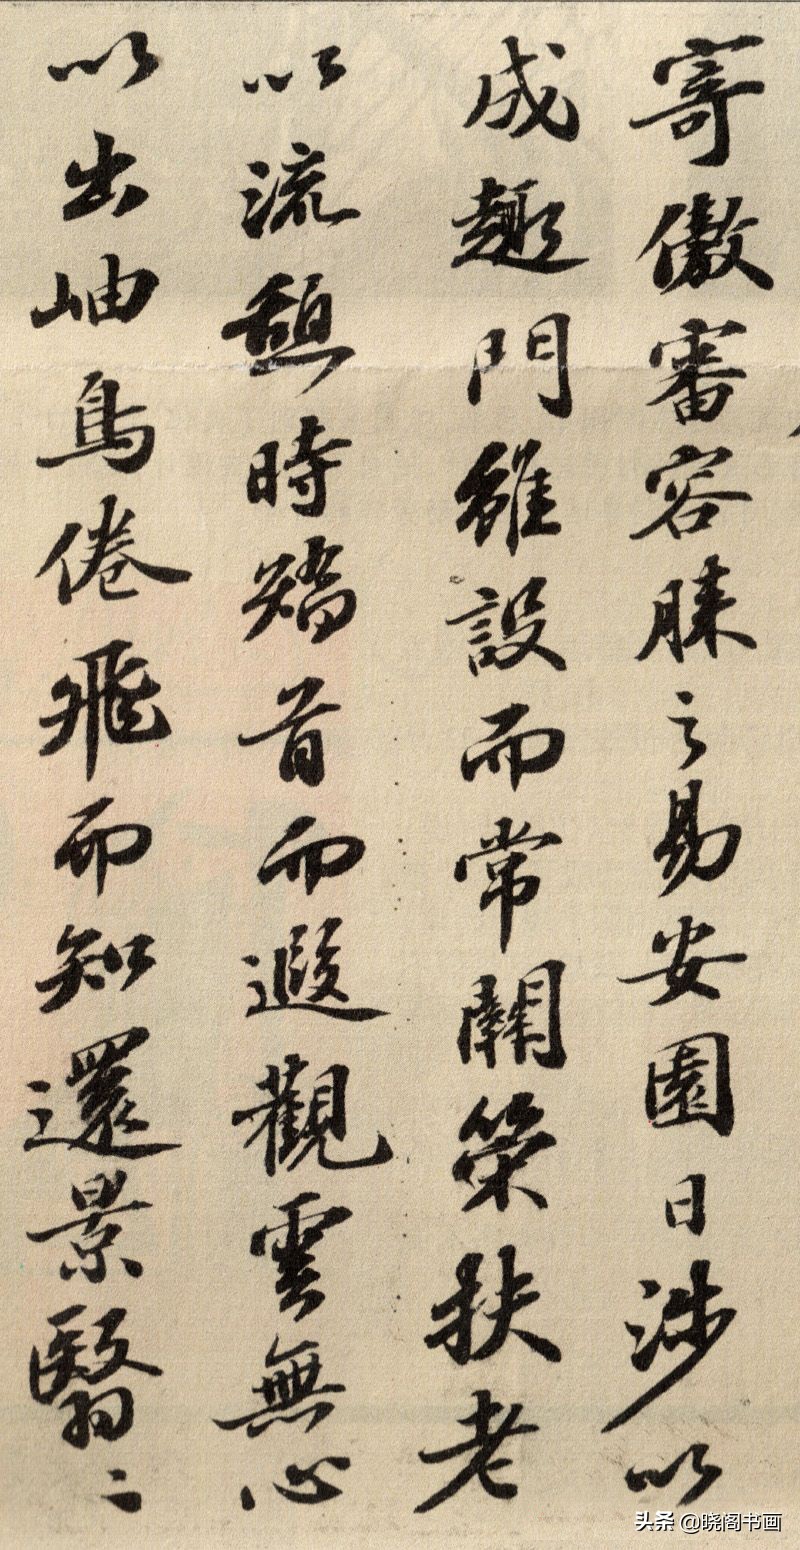 寄傲審容膝之易安園日涉以
成趣門雖設而常關策扶老
以流憩時矯首而遐觀雲無心
以出岫鳥倦飛而知還景翳〻
头条 @晓阁书画